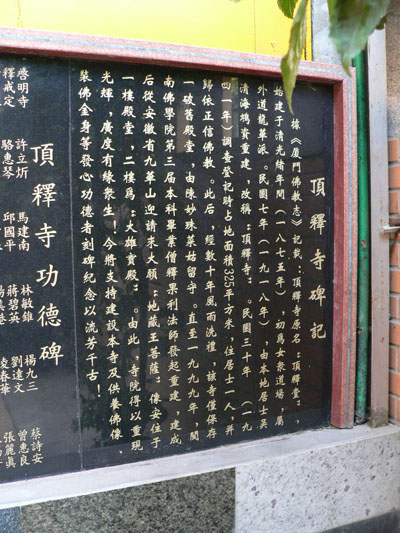 頂釋寺碑記
據《廈門佛教志》記載：頂釋寺原名“頂釋堂”，
始建于清光緒年間（一八七五年），初爲女衆道場，屬
外道龍華派。民國七年（一九一八年），由本地居士吳
清海鳩資重建，改稱“頂釋寺”。民國三十年（一九
四一年）調查登記時占地面積325平方米，住居士一人，并
歸依正信佛教。此后，經數十年風雨洗禮，該寺僅保存
一破舊殿堂，由陳妙珠菜姑留守。直至一九九九年，閩
南佛學院第三届本科畢業僧釋果利法師發起重建，建成
后從安徽省九華山迎請來大願“地藏王菩薩”像安住于
一樓殿堂，二樓爲“大雄寶殿”。由此，寺院得以重現
光輝，廣度有緣衆生！今將支持建設本寺及供養佛像、
裝佛金身等發心功德者刻碑紀念以流芳千古！
頂釋寺功德碑
啓明寺 許立炘 馬建南 林敏錐 楊九三 蔡詩安
釋戒定 駱惠琴 邱國平 蔣碧英 劉遠文 曾惠良
凌春華 張麗真